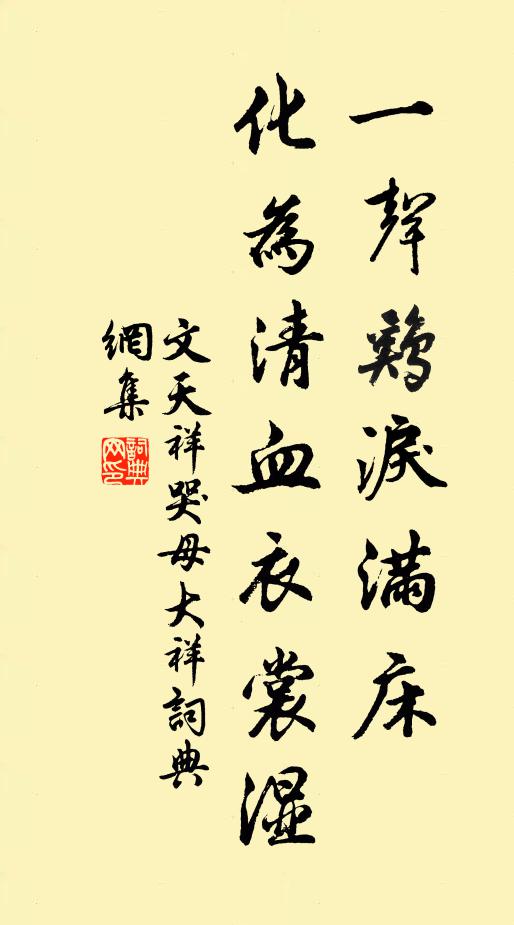 一聲鷄淚滿床
化為清血衣裳濕
文天祥哭母大祥詞典
網集
詞典網印